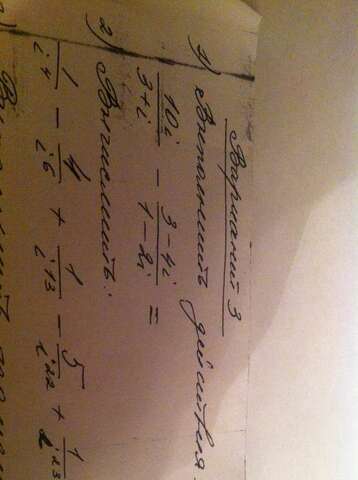 Вариант 3
1) Выполнить действия
10i/3+i - 3-4i/1-2i =
2) Вычислить:
1/i⁴ - 4/i⁶ + 1/i¹³ - 5/i²² + 1/i²³